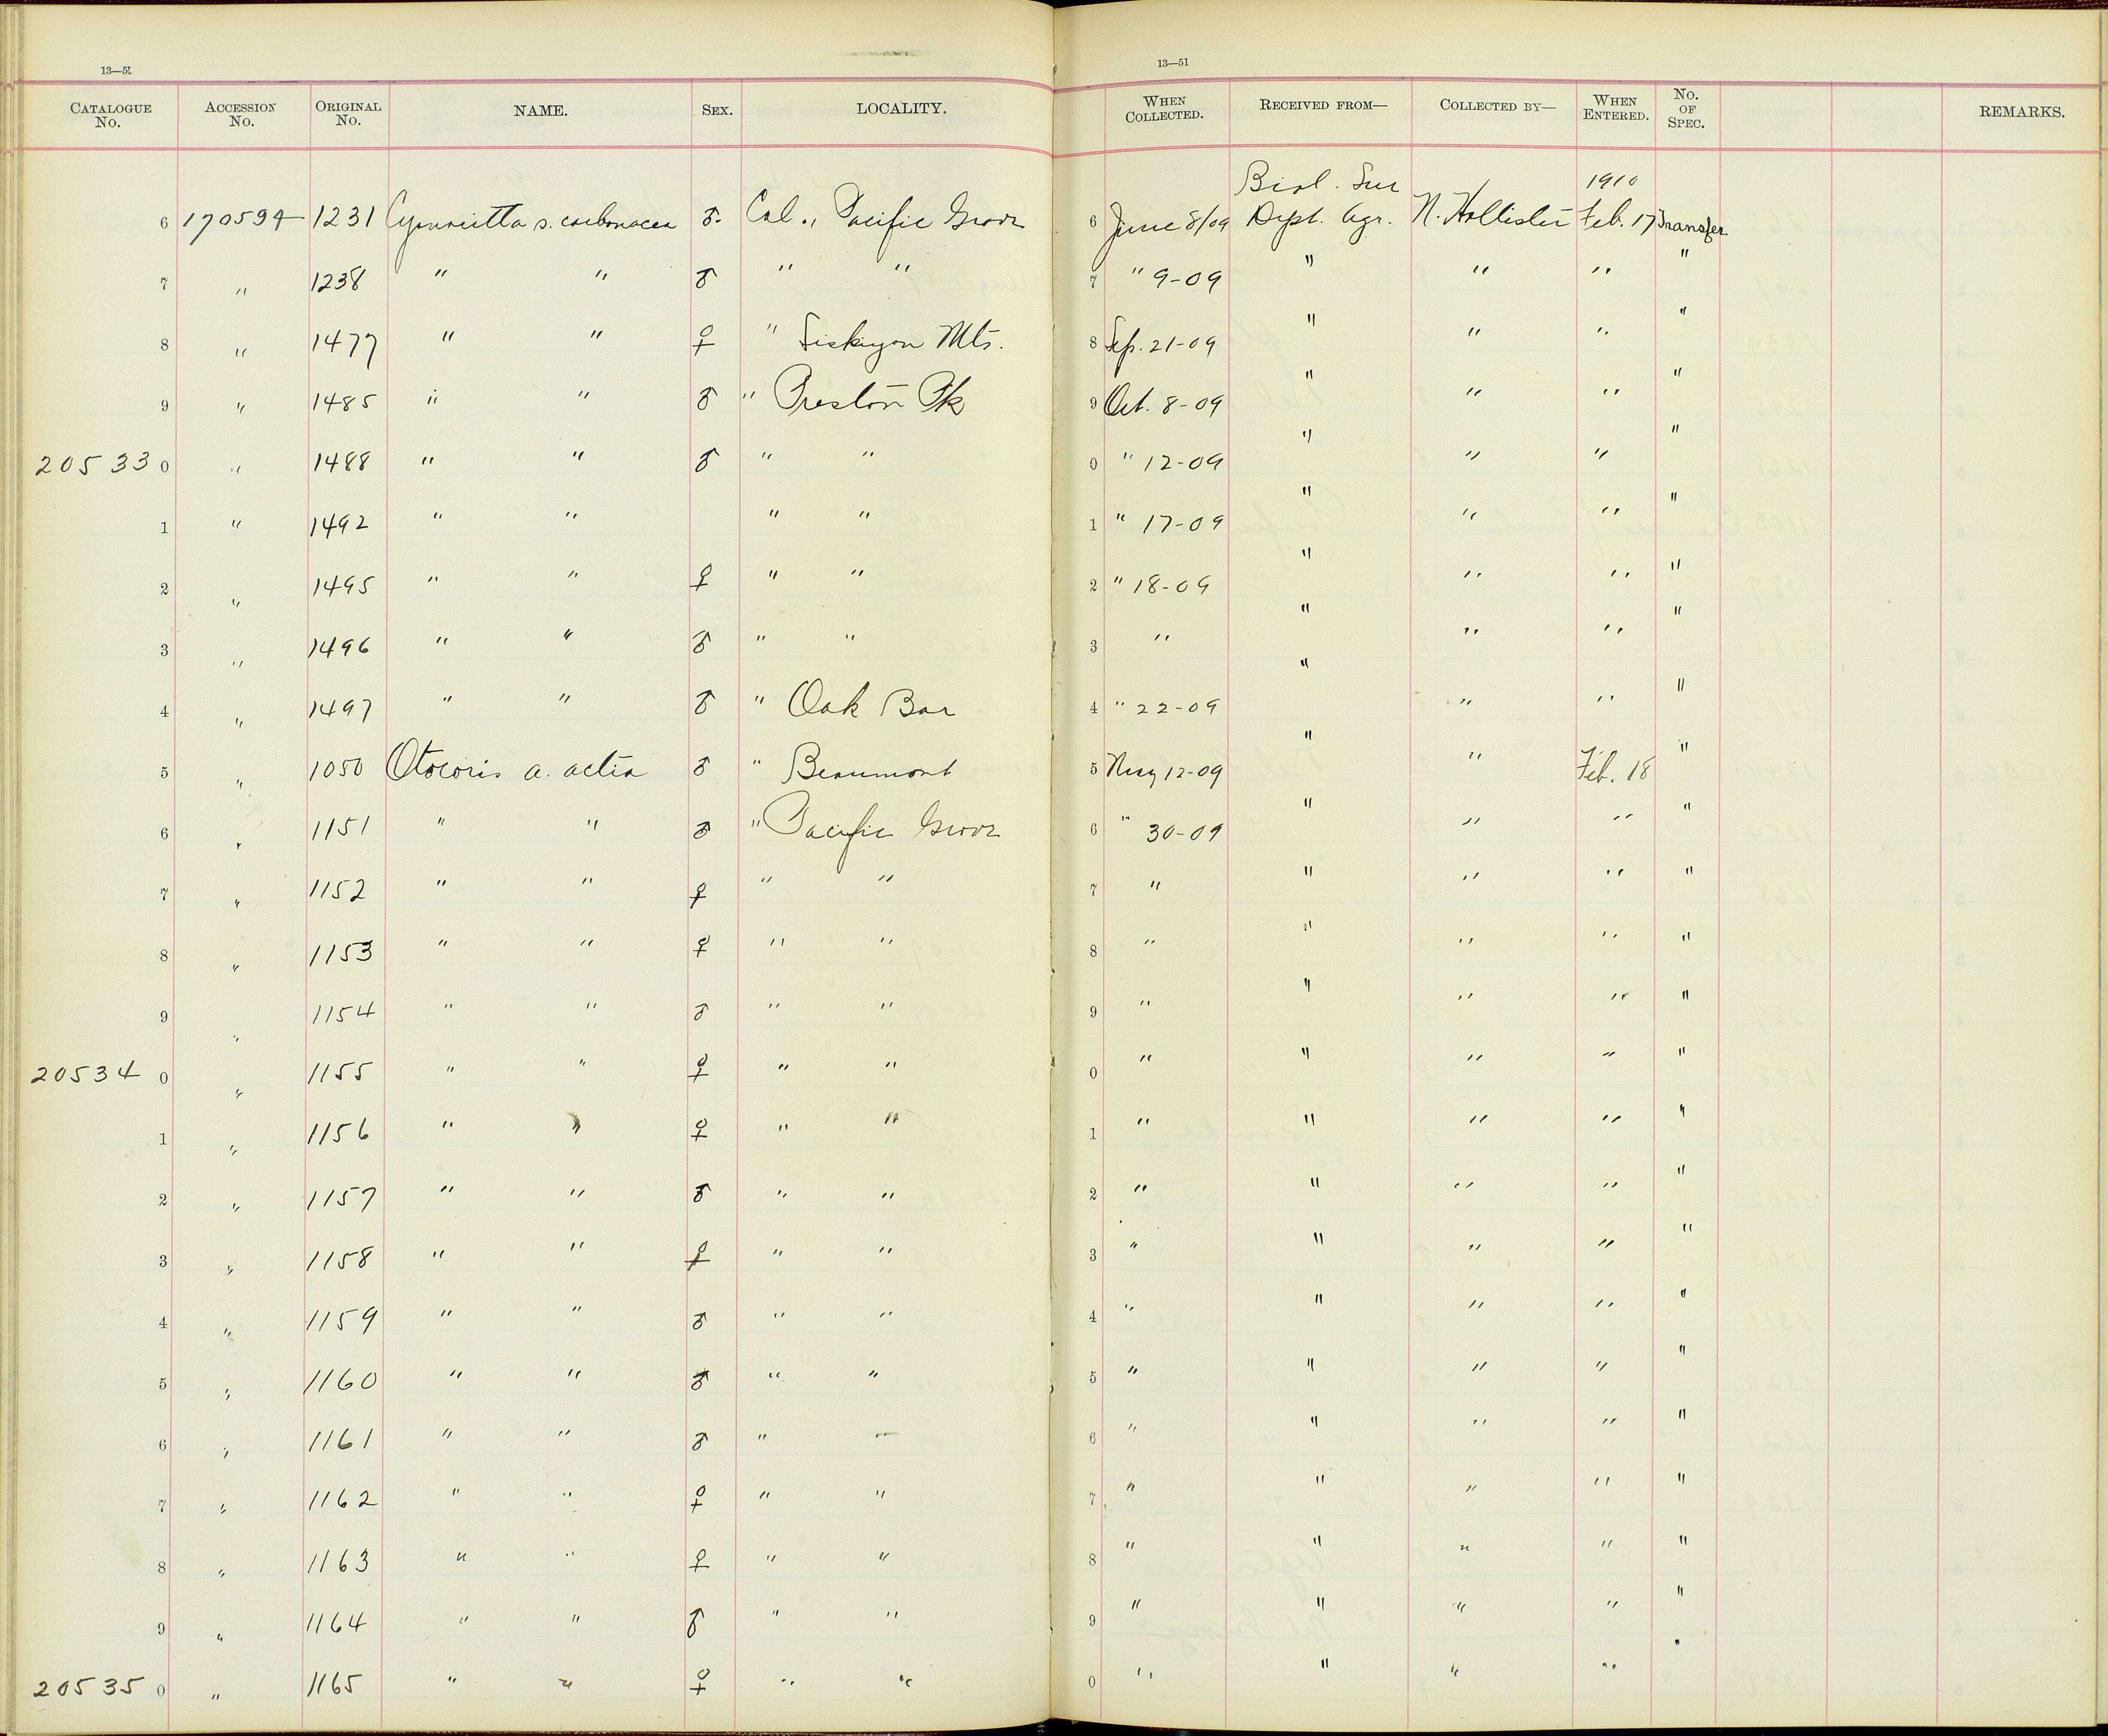 13—51 13—51
CATALOGUE No. ACCESSION No. ORIGINAL No. NAME. SEX. LOCALITY. WHEN COLLECTED. RECEIVED FROM— COLLECTED BY— WHEN ENTERED. No. OF SPEC. REMARKS.
Biol. Sur 1910
6 170594 1231 s. carbonacea ♂. Cal., Pacific Grove 6 June 8/09 Dept. Agr. N. Hollister Feb. 17 Transfer
7 " 1238 " " ♂ " " 7 " 9-09 " " " "
8 " 1477 " " ♀ " Siskiyou Mts. 8 Sep. 21-09 " " " "
9 " 1485 " " ♂ " Preston Pk 9 Oct. 8-09 " " " "
20533 0 " 1488 " " ♂ " " 0 " 12-09 " " " "
1 " 1492 " " " " 1 " 17-09 " " " "
2 " 1495 " " ♀ " " 2 " 18-09 " " " "
3 " 1496 " " ♂ " " 3 " " " " "
4 " 1497 " " ♂ " Oak Bar 4 " 22-09 " " " "
5 " 1050 Otocoris a. actia ♂ " Beaumont 5 May 12-09 " " Feb. 18 "
6 " 1151 " " ♂ " Pacific Grove 6 " 30-09 " " " "
7 " 1152 " " ♀ " " 7 " " " " "
8 " 1153 " " ♀ " " 8 " " " " "
9 " 1154 " " ♂ " " 9 " " " " "
20534 0 " 1155 " " ♀ " " 0 " " " " "
1 " 1156 " " ♀ " " 1 " " " " "
2 " 1157 " " ♂ " " 2 " " " " "
3 " 1158 " " ♀ " " 3 " " " " "
4 " 1159 " " ♂ " " 4 " " " " "
5 " 1160 " " ♂ " " 5 " " " " "
6 " 1161 " " ♂ " " 6 " " " " "
7 " 1162 " " ♀ " " 7 " " " " "
8 " 1163 " " ♀ " " 8 " " " " "
9 " 1164 " " ♂ " " 9 " " " " "
20535 0 " 1165 " " ♀ " " 0 " " " " "